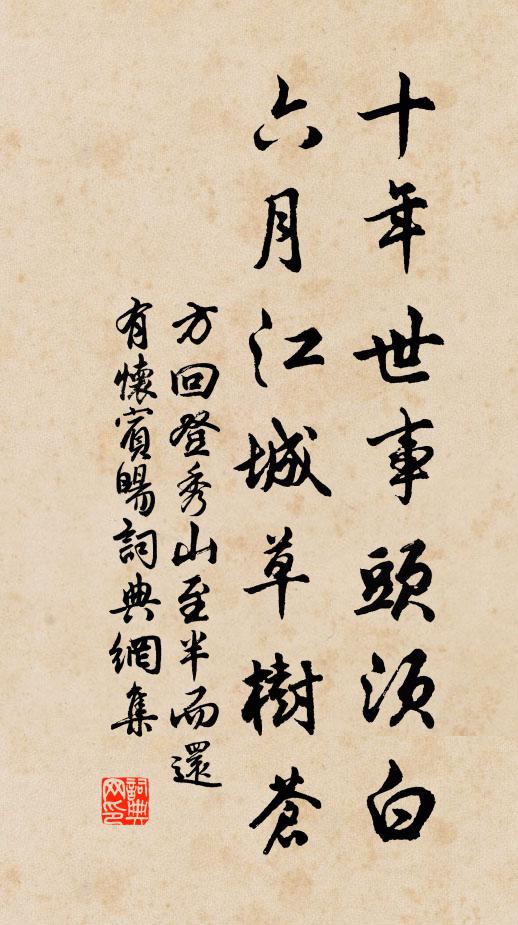 十年世事頭須白
六月江城草樹蒼
方回登秀山至半而還
有懷賓暘詞典網集
詞典
网印